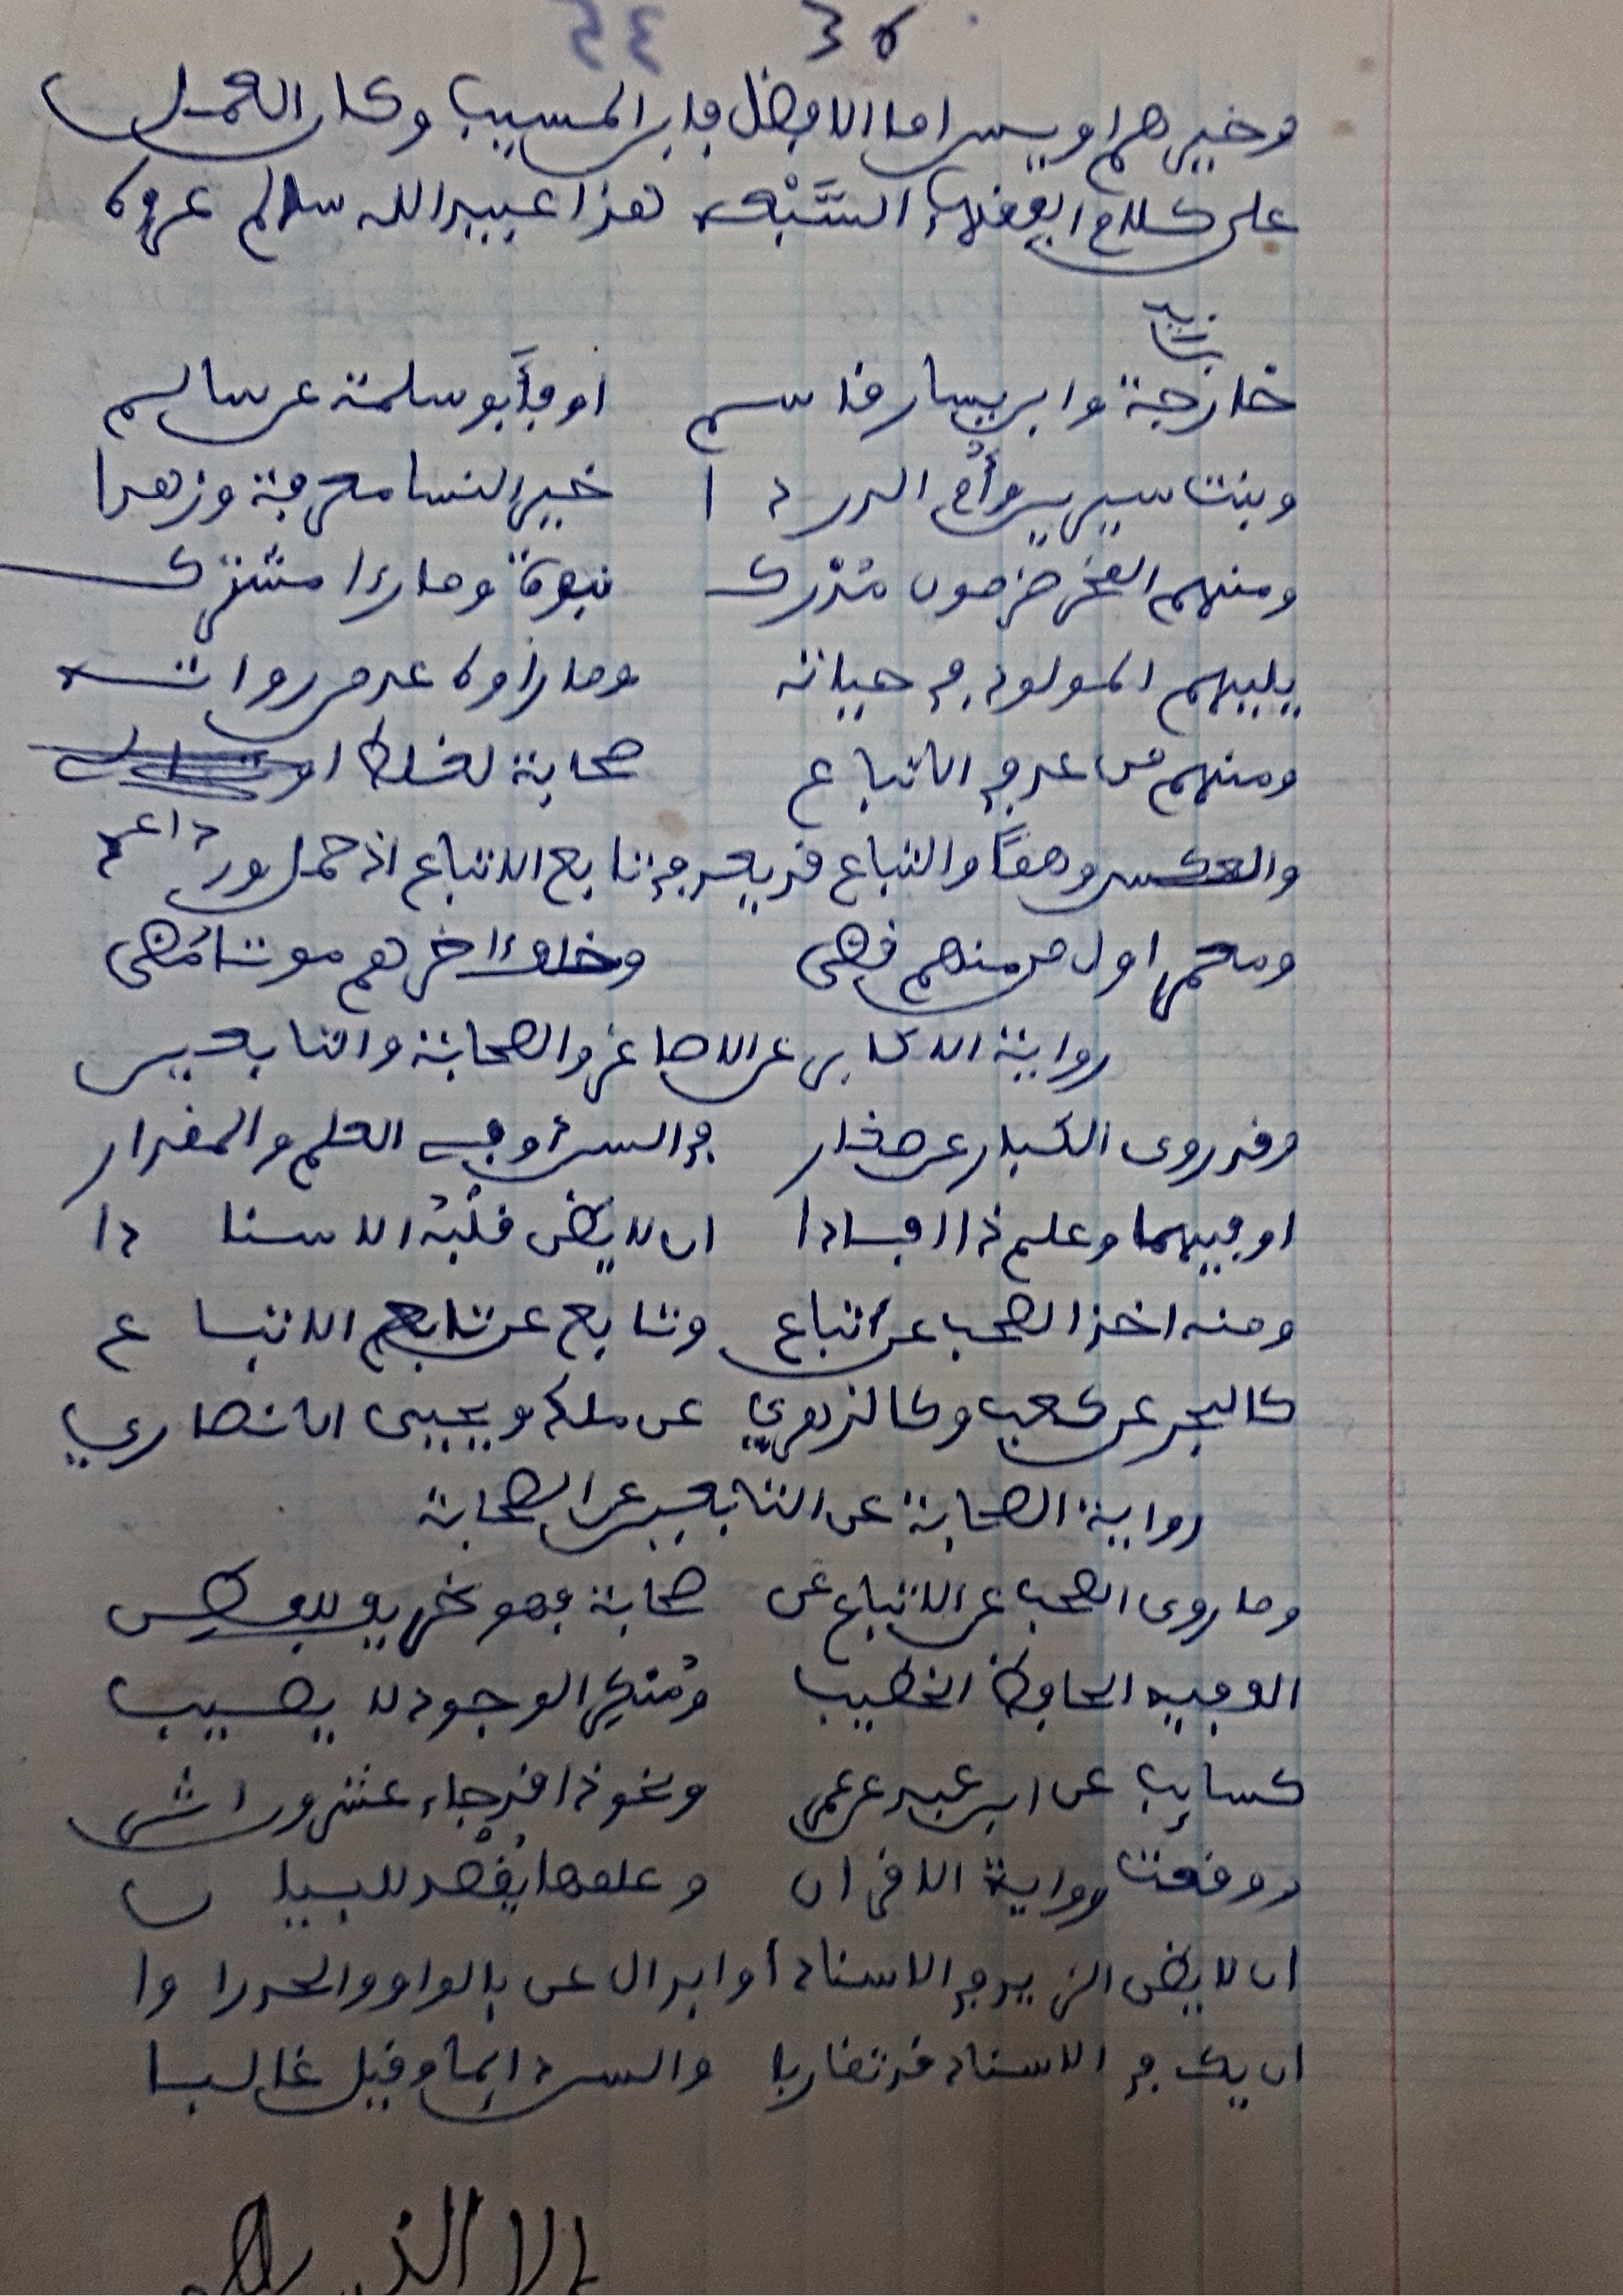 ٣٥
وخيرهم اويس اما الافضل فابن المسيب وكان العمل
على كلام الفقهاء السَّبْعه هذا عبيد الله سالم عروه
زيد
ثابت
خارجة وابن يسار قاسم او فأَبو سلمة عن سالم
وبنت سيرين وأُم الدردا خير النسا معرفة وزهدا
ومنهم المخضرمون مُدْرك نبوة وما رءا مشترك
يليهم المولود في حياته وما رأوه عد من رواته
ومنهم من عد في الاتباع صحابة لغلط او
داع
والعكس وهمًا والتباع قد يعد في تابع الاتباع اذ حمل ورد
ومعمر اول من منهم قضى وخلف اخرهم موتا مَضى
رواية الاكابر عن الاصاغر والصحابة والتابعين
وقد روى الكبار عن صغار في السن أو في العلم والمقدار
او فيهما وعلم ذا افادا ان لا يظن قلْبُه الاسنادا
ومنه اخذ الصحب عن اتباع وتابع عن تابع الاتباع
كالبحر عن كعب وكالزهري عن ملك ويحيى الانصاري
رواية الصحابة عن التابعين عن الصحابة
وما روى الصحب عن الاتباع عن صحابة فهو ظريف للفطن
الف فيه الحافظ الخطيب ومُنكر الوجود لا يصيب
كسايب عن ابن عبد عن عمر ونحو ذا قد جاء عشرون اثر
ووقعت رواية الاقران وعلمها يُقْصد للبيان
ان لا يظن الزيد في الاسناد أو ابدال عن بالواو والحد راوا
ان يك في الاسناد قد تقاربا والسن دايما وقيل غالبا